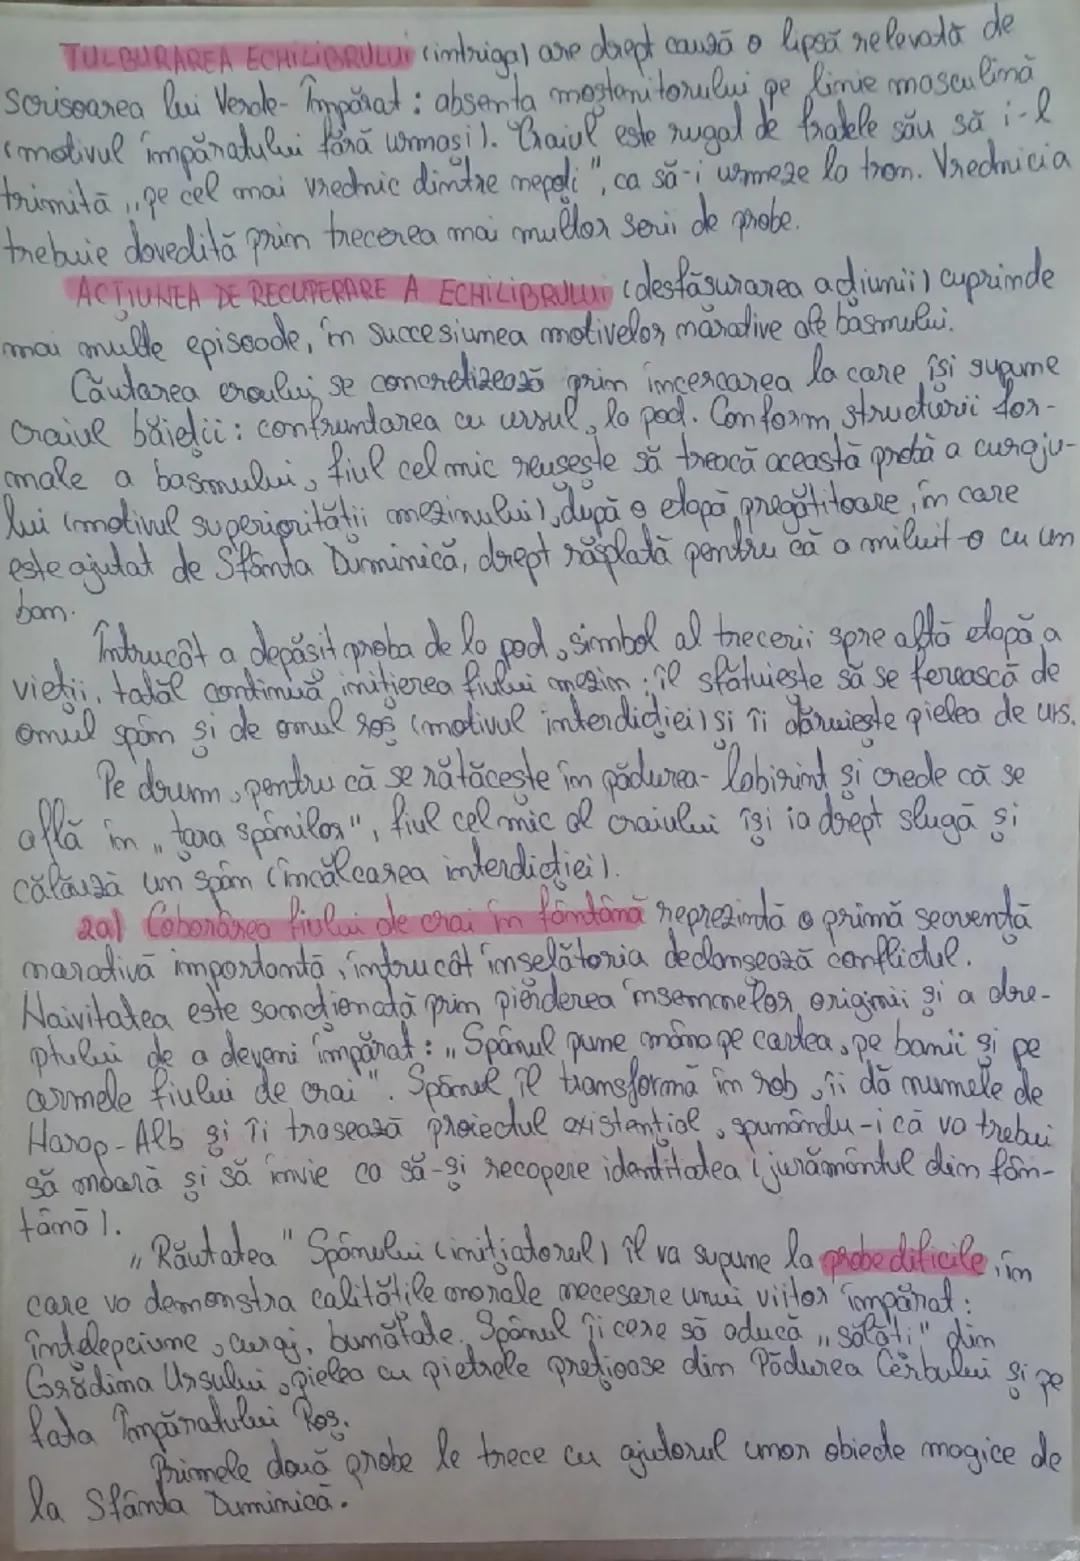 TULBURAREA ECHILIBRULUI (intriga) are drept cauză o lipsă relevată de
scrisoarea lui Verde-Împărat: absența moștenitorului pe linie masculină
(motivul împăratului fără urmași). Craiul este rugat de fratele său să i-l
trimită „pe cel mai vrednic dintre nepoți", ca să-i urmeze la tron. Vrednicia
trebuie dovedită prin trecerea mai multor serii de probe.
ACȚIUNEA DE RECUPERARE A ECHILIBRULUI (desfășurarea acțiunii) cuprinde
mai multe episoade, în succesiunea motivelor narative ale basmului.
Căutarea eroului se concretizează prin încercarea la care își supune
craiul băieții: confruntarea cu ursul, la pod. Conform structurii for-
male a basmului, fiul cel mic reușește să treacă această probă a curaju-
lui (motivul superiorității mezinului), după o etapă pregătitoare, în care
este ajutat de Sfânta Duminică, drept răsplată pentru că a miluit-o cu un
ban.
Întrucât a depășit proba de la pod, simbol al trecerii spre altă etapă a
vieții, tatăl continuă inițierea fiului mezin: îl sfătuiește să se ferească de
omul spân și de omul roș (motivul interdicției) și îi dăruiește pielea de urs.
Pe drum, pentru că se rătăcește în pădurea-labirint și crede că se
află în „țara spânilor", fiul cel mic al craiului își ia drept slugă și
călăuză un spân (încălcarea interdicției).
2a) Coborârea fiului de crai în fântână reprezintă o primă secvență
narativă importantă, întrucât înșelătoria declanșează conflictul.
Naivitatea este sancționată prin pierderea însemnelor originii și a dre-
ptului de a deveni împărat: „Spânul pune mâna pe cartea, pe banii și pe
armele fiului de crai". Spânul îl transformă în rob, îi dă numele de
Harap-Alb și îi trasează proiectul existențial, spunându-i că va trebui
să moară și să învie ca să-și recapere identitatea (jurământul din fân-
tână).
„Răutatea" Spânului (inițiatorul) îl va supune la probe dificile, în
care va demonstra calitățile morale necesare unui viitor împărat:
înțelepciune, curaj, bunătate. Spânul îi cere să aducă „sălăți" din
Grădina Ursului, pielea cu pietrele prețioase din Pădurea Cerbului și pe
fata Împăratului Roș.
Primele două probe le trece cu ajutorul unor obiecte magice de
la Sfânta Duminică.